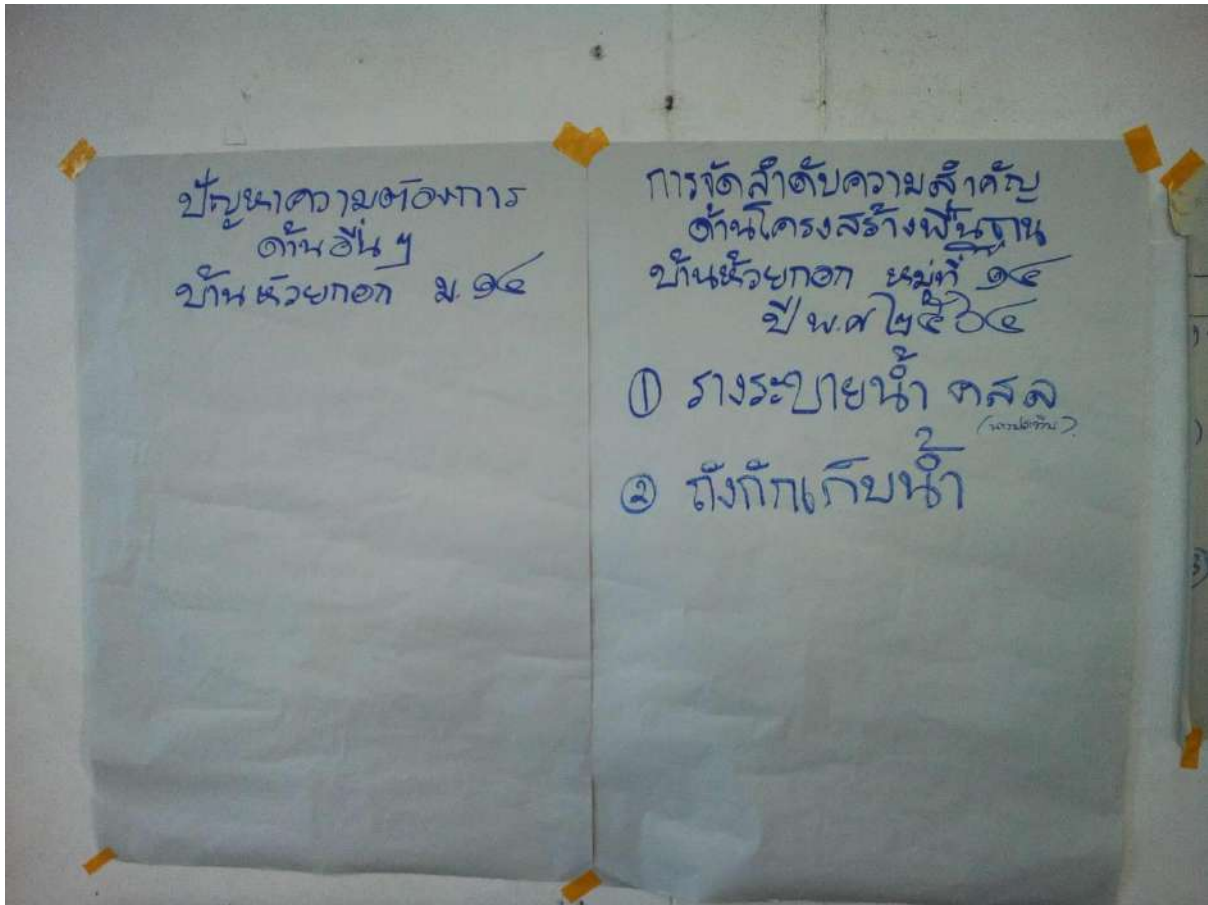 ปัญหาความต้องการ
ด้านอื่น ๆ
บ้านห้วยกอก ม. ๑๔
การจัดลำดับความสำคัญ
ด้านโครงสร้างพื้นฐาน
บ้านห้วยกอก หมู่ที่ ๑๔
ปี พ.ศ ๒๕๖๔
① รางระบายน้ำ คสล
② ถังกักเก็บน้ำ